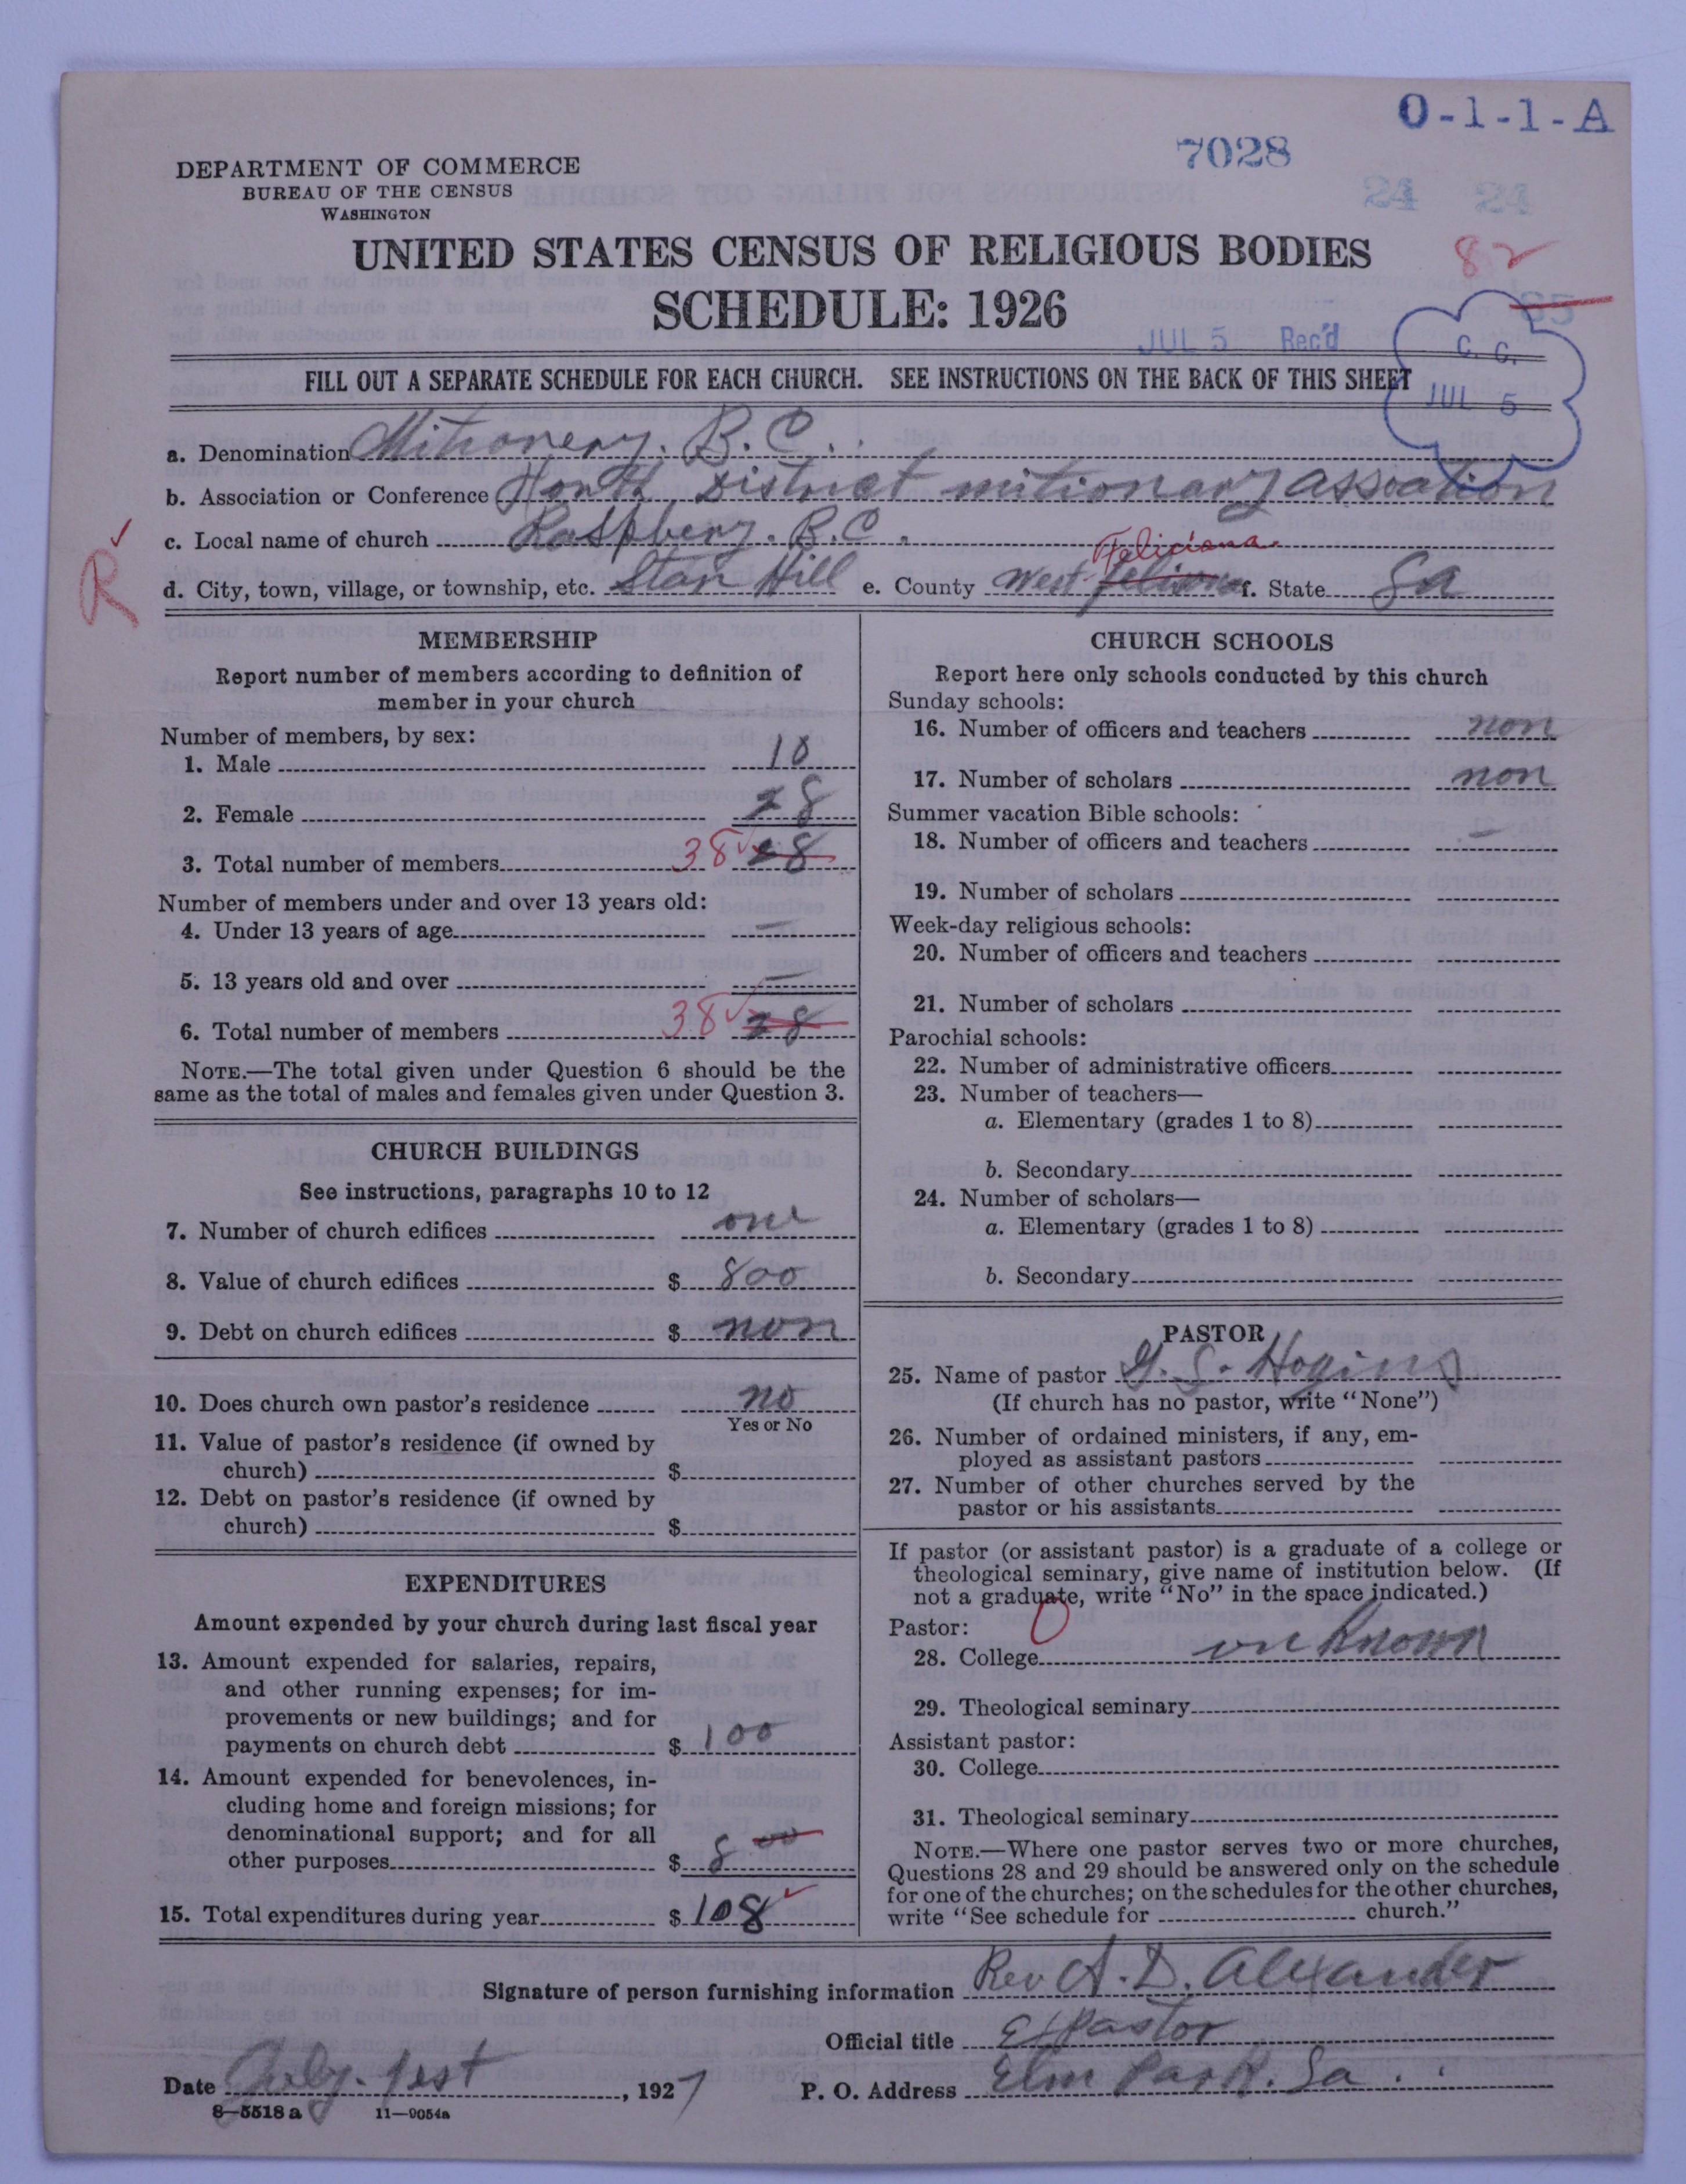 0-1-1-A
7028
DEPARTMENT OF COMMERCE
BUREAU OF THE CENSUS
WASHINGTON
UNITED STATES CENSUS OF RELIGIOUS BODIES
82
SCHEDULE: 1926
JUL 5 Rec'd
C. C.
JUL 5
FILL OUT A SEPARATE SCHEDULE FOR EACH CHURCH. SEE INSTRUCTIONS ON THE BACK OF THIS SHEET
a. Denomination Mitionery. B. C.
b. Association or Conference District mitionary assoation
c. Local name of church Raspbery. B.C.
R
d. City, town, village, or township, etc. Star Hill e. County West Feliciana f. State La
MEMBERSHIP
Report number of members according to definition of
member in your church
Number of members, by sex:
1. Male 10
2. Female 28
3. Total number of members 38 28
Number of members under and over 13 years old:
4. Under 13 years of age —
5. 13 years old and over —
6. Total number of members 38 28
NOTE.—The total given under Question 6 should be the
same as the total of males and females given under Question 3.
CHURCH BUILDINGS
See instructions, paragraphs 10 to 12
7. Number of church edifices one
8. Value of church edifices $ 800
9. Debt on church edifices $ non
10. Does church own pastor's residence no
Yes or No
11. Value of pastor's residence (if owned by
church) $
12. Debt on pastor's residence (if owned by
church) $
EXPENDITURES
Amount expended by your church during last fiscal year
13. Amount expended for salaries, repairs,
and other running expenses; for im-
provements or new buildings; and for
payments on church debt $ 100
14. Amount expended for benevolences, in-
cluding home and foreign missions; for
denominational support; and for all
other purposes $ 8 00
15. Total expenditures during year $ 108
CHURCH SCHOOLS
Report here only schools conducted by this church
Sunday schools:
16. Number of officers and teachers non
17. Number of scholars non
Summer vacation Bible schools:
18. Number of officers and teachers —
19. Number of scholars
Week-day religious schools:
20. Number of officers and teachers
21. Number of scholars
Parochial schools:
22. Number of administrative officers
23. Number of teachers—
a. Elementary (grades 1 to 8)
b. Secondary
24. Number of scholars—
a. Elementary (grades 1 to 8)
b. Secondary
PASTOR
25. Name of pastor G. S. Hogins
(If church has no pastor, write "None")
26. Number of ordained ministers, if any, em-
ployed as assistant pastors
27. Number of other churches served by the
pastor or his assistants
If pastor (or assistant pastor) is a graduate of a college or
theological seminary, give name of institution below. (If
not a graduate, write "No" in the space indicated.)
Pastor: 0
28. College onknown
29. Theological seminary
Assistant pastor:
30. College
31. Theological seminary
NOTE.—Where one pastor serves two or more churches,
Questions 28 and 29 should be answered only on the schedule
for one of the churches; on the schedules for the other churches,
write "See schedule for church."
Signature of person furnishing information Rev A. D. Alexander
Official title Ex Pastor
Date July. fest, 1927 P. O. Address Elm Park. La.
8—5518 a 11—9054a